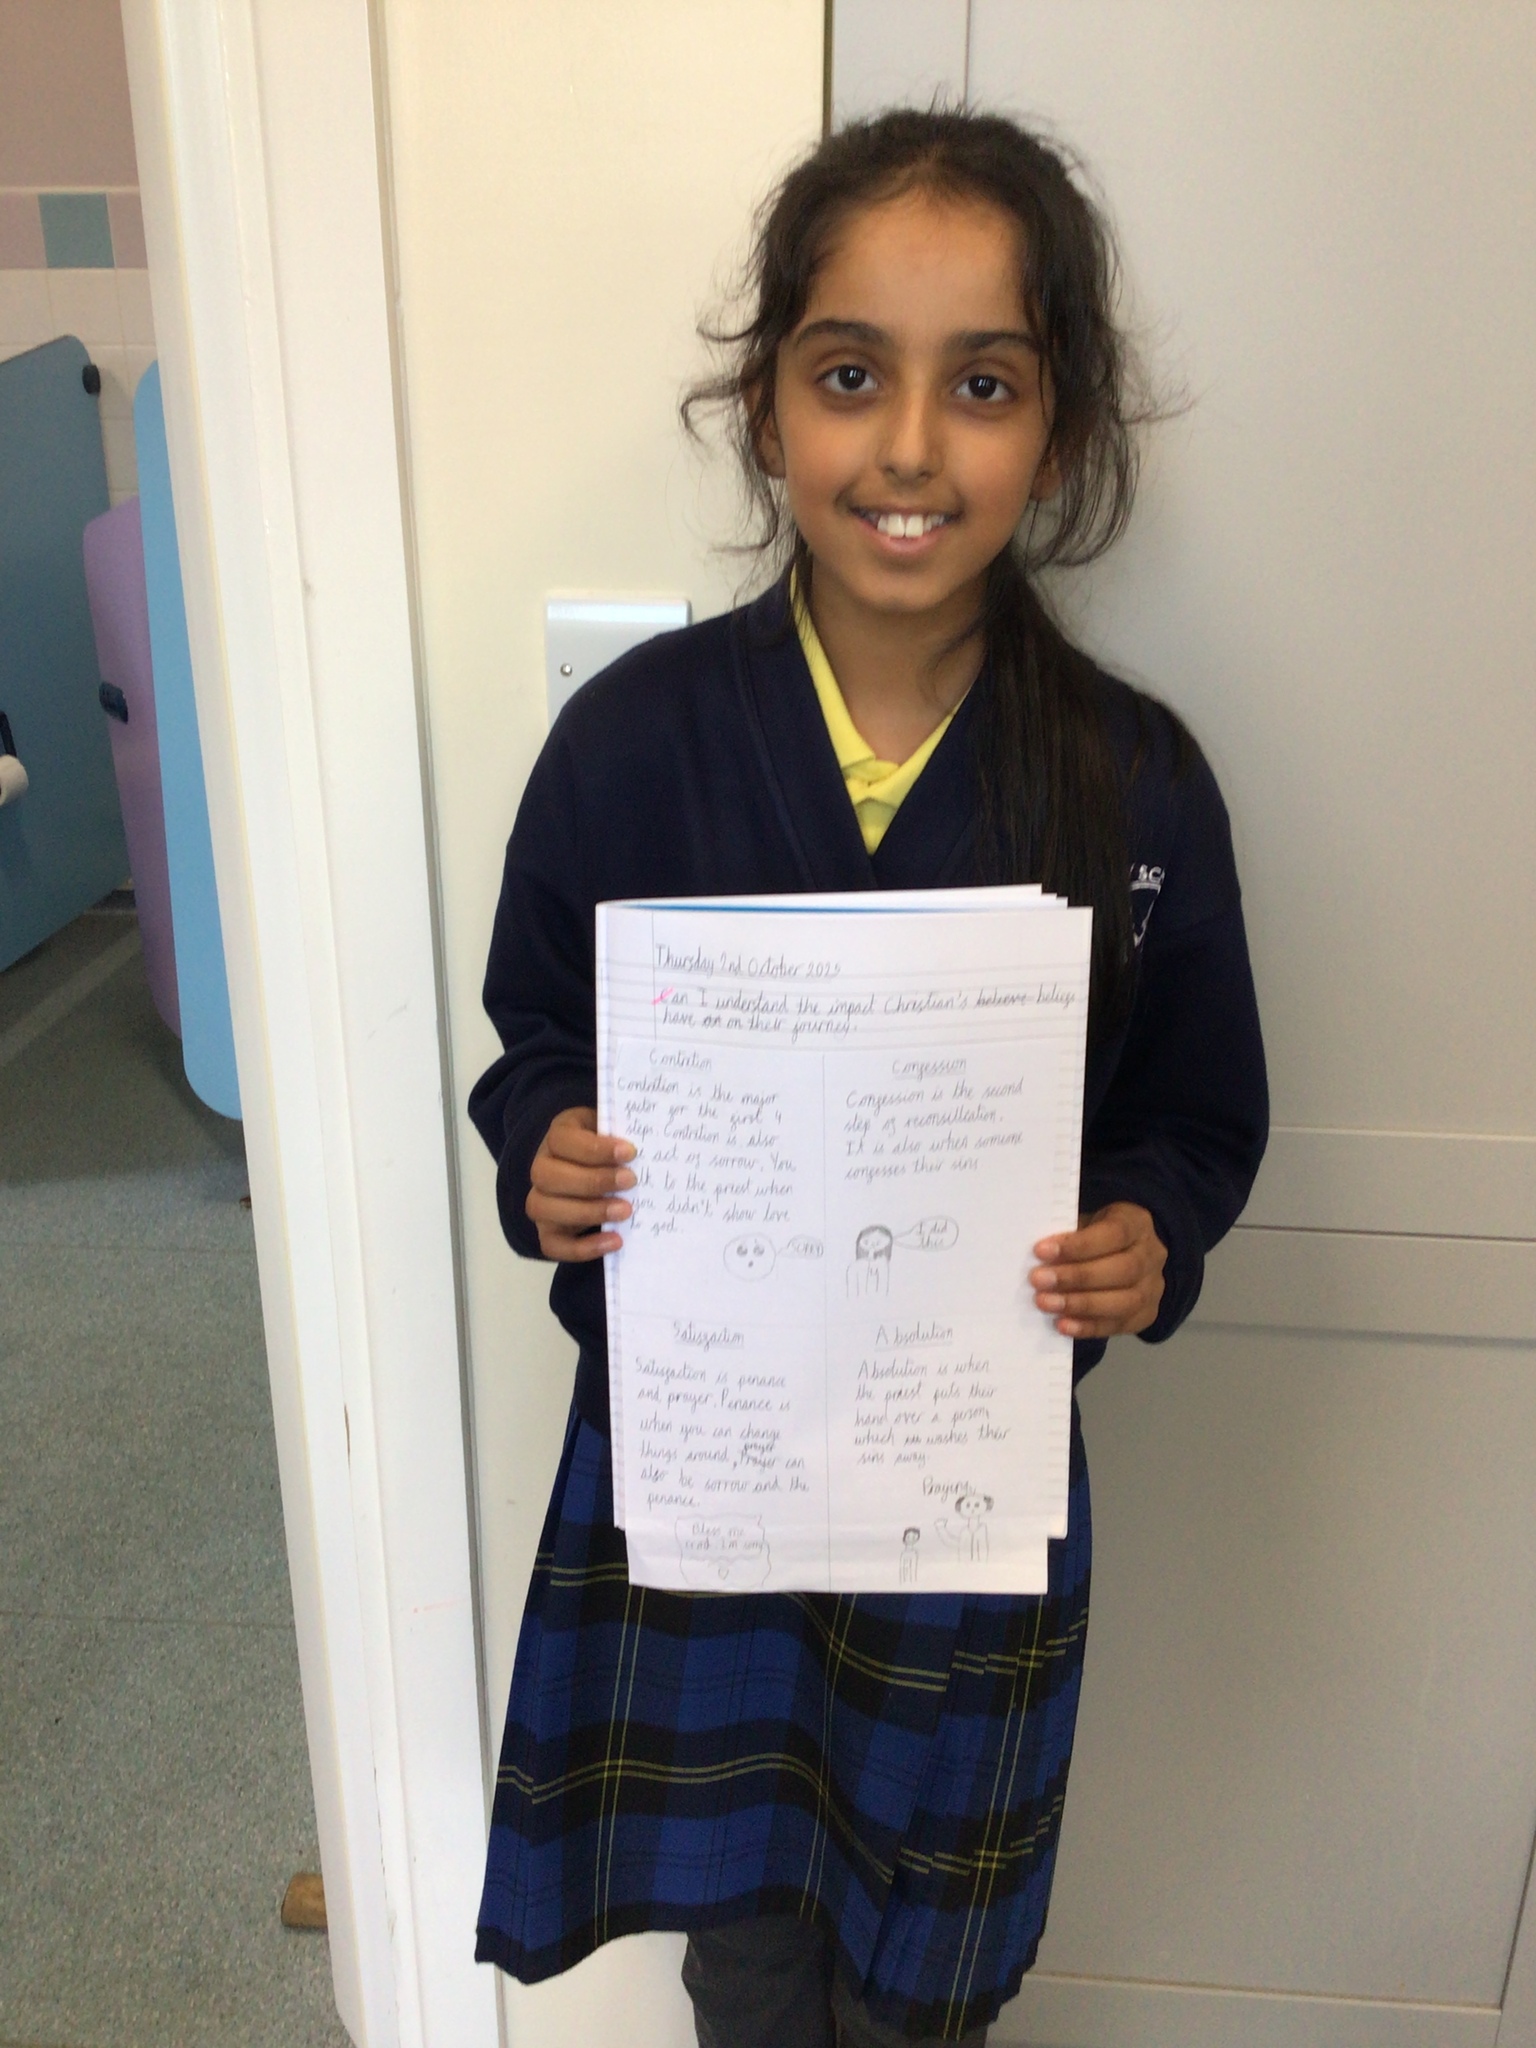 Thursday 2nd October 2025
Can I understand the impact Christian's beliefs
have on on their journey.
Contrition
Contrition is the major
factor for the first 4
steps. Contrition is also
act of sorrow. You
lk to the priest when
you didn't show love
to god.
sorry
Confession
Confession is the second
step of reconsilleation.
It is also when someone
confesses their sins
I did
this
Satisfaction
Satisfaction is penance
and prayer. Penance is
when you can change
things around, prayer can
also be sorrow and the
penance.
Bless me
I'm sorry
Absolution
Absolution is when
the priest puts their
hand over a person
which washes their
sins away.
Praying
Y SC